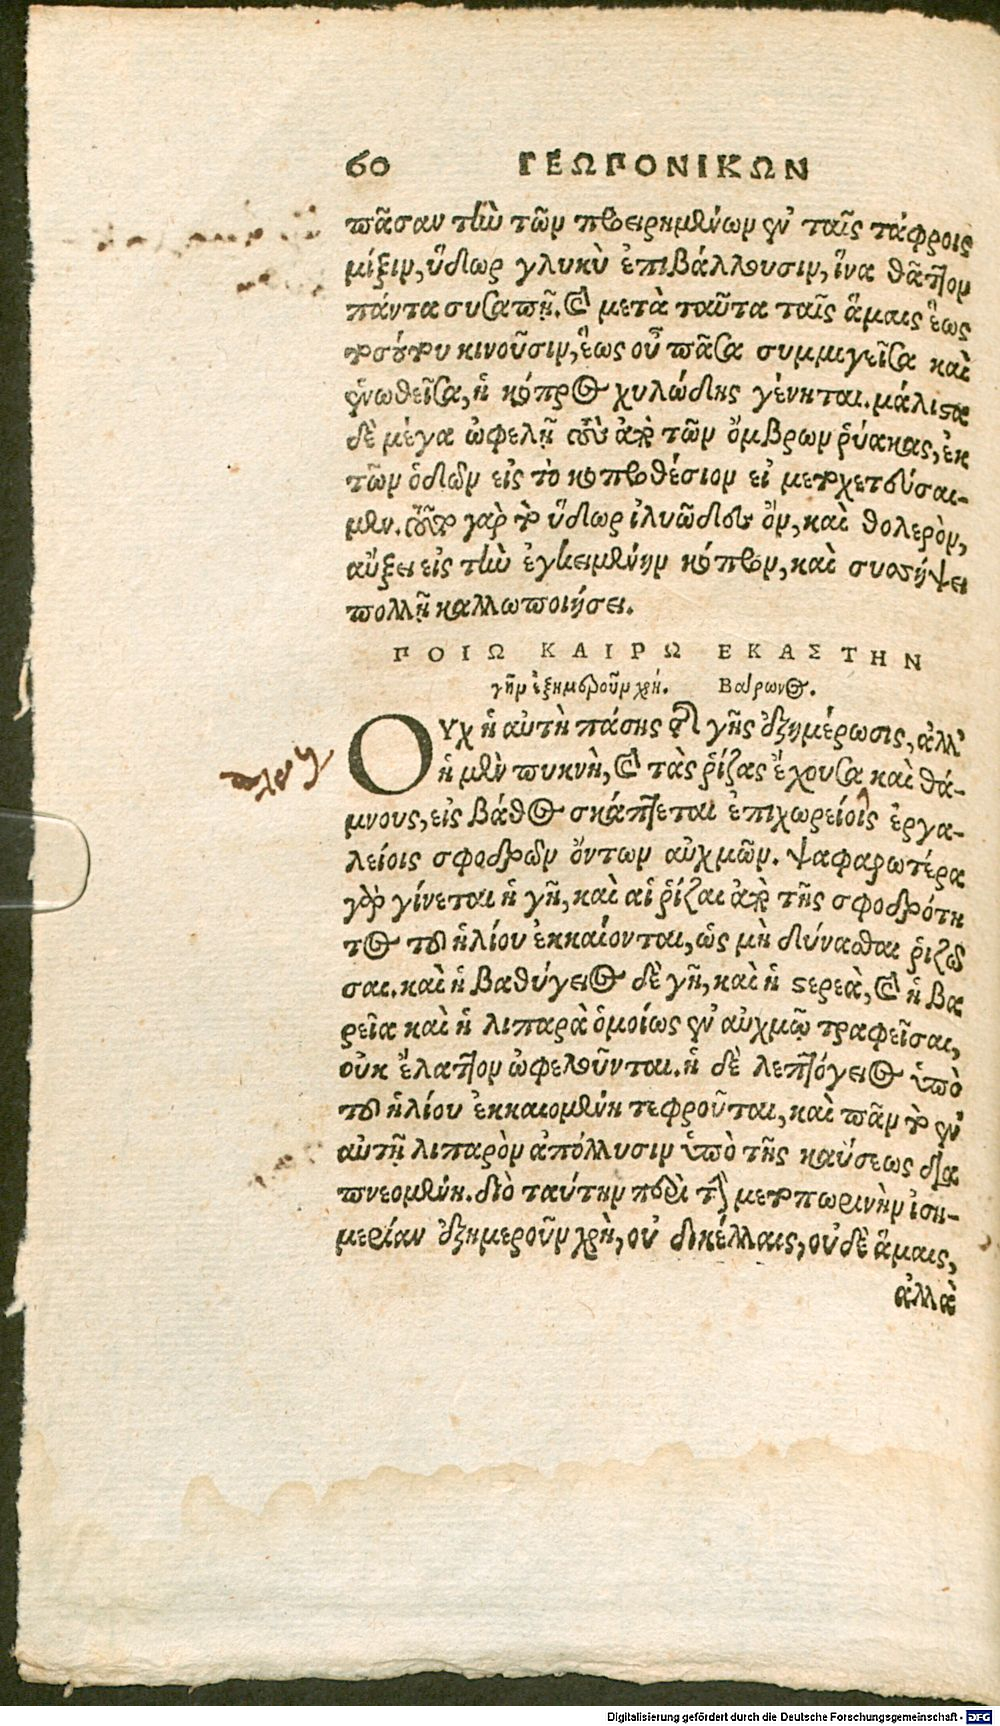 60 ΓΕΩΠΟΝΙΚΩΝ
πᾶσαν τὴν τῶν προειρημένων ἐν ταῖς τάφροις
μίξιν, ὕδωρ γλυκὺ ἐπιβάλλουσιν, ἵνα θᾶττον
πάντα συσαπῇ. καὶ μετὰ ταῦτα ταῖς ἅμαις ἕως
τοσούτου κινοῦσιν, ἕως οὗ πᾶσα συμμιγεῖσα καὶ
ἑνωθεῖσα, ἡ κόπρος χυλώδης γένηται. μάλιστα
δὲ μέγα ὠφελῇ τοὺς ἀπὸ τῶν ὄμβρων ῥύακας, ἐκ
τῶν ὁδῶν εἰς τὸ κοπροθέσιον εἰ μετοχετεύσαι-
μεν. τοῦτο γὰρ τὸ ὕδωρ ἰλυῶδες ὂν, καὶ θολερὸν,
αὔξει εἰς τὴν ἐγκειμένην κόπρον, καὶ συσσήψει
πολλῇ καλλωποιήσει.
ΠΟΙΩ ΚΑΙΡΩ ΕΚΑΣΤΗΝ
γῆν ἐξημεροῦν χρή. Βάρωνος.
ΟΥχ ἡ αὐτὴ πάσης ἐστὶ γῆς ἐξημέρωσις, ἀλλ'
ἡ μὲν πυκνὴ, καὶ τὰς ῥίζας ἔχουσα καὶ θά-
μνους, εἰς βάθος σκάπτεται ἐπιχωρείοις ἐργα-
λείοις σφοδρῶν ὄντων αὐχμῶν. ψαφαρωτέρα
γὰρ γίνεται ἡ γῆ, καὶ αἱ ῥίζαι ἀπὸ τῆς σφοδρότη
τος τοῦ ἡλίου ἐκκαίονται, ὡς μὴ δύνασθαι ῥιζῶ
σαι. καὶ ἡ βαθύγειος δὲ γῆ, καὶ ἡ στερεὰ, καὶ ἡ βα
ρεῖα καὶ ἡ λιπαρὰ ὁμοίως ἐν αὐχμῷ τραφεῖσαι,
οὐκ ἔλαττον ὠφελοῦνται. ἡ δὲ λεπτόγειος ὑπὸ
τοῦ ἡλίου ἐκκαιομένη τεφροῦται, καὶ πᾶν τὸ ἐν
αὐτῇ λιπαρὸν ἀπόλλυσιν ὑπὸ τῆς καύσεως δια
πνεομένη. διὸ ταύτην περὶ τὴν μετοπωρινὴν ἰση-
μερίαν ἐξημεροῦν χρὴ, οὐ δικέλλαις, οὐδὲ ἅμαις,
ἀλλὰ
Digitalisierung gefördert durch die Deutsche Forschungsgemeinschaft - DFG